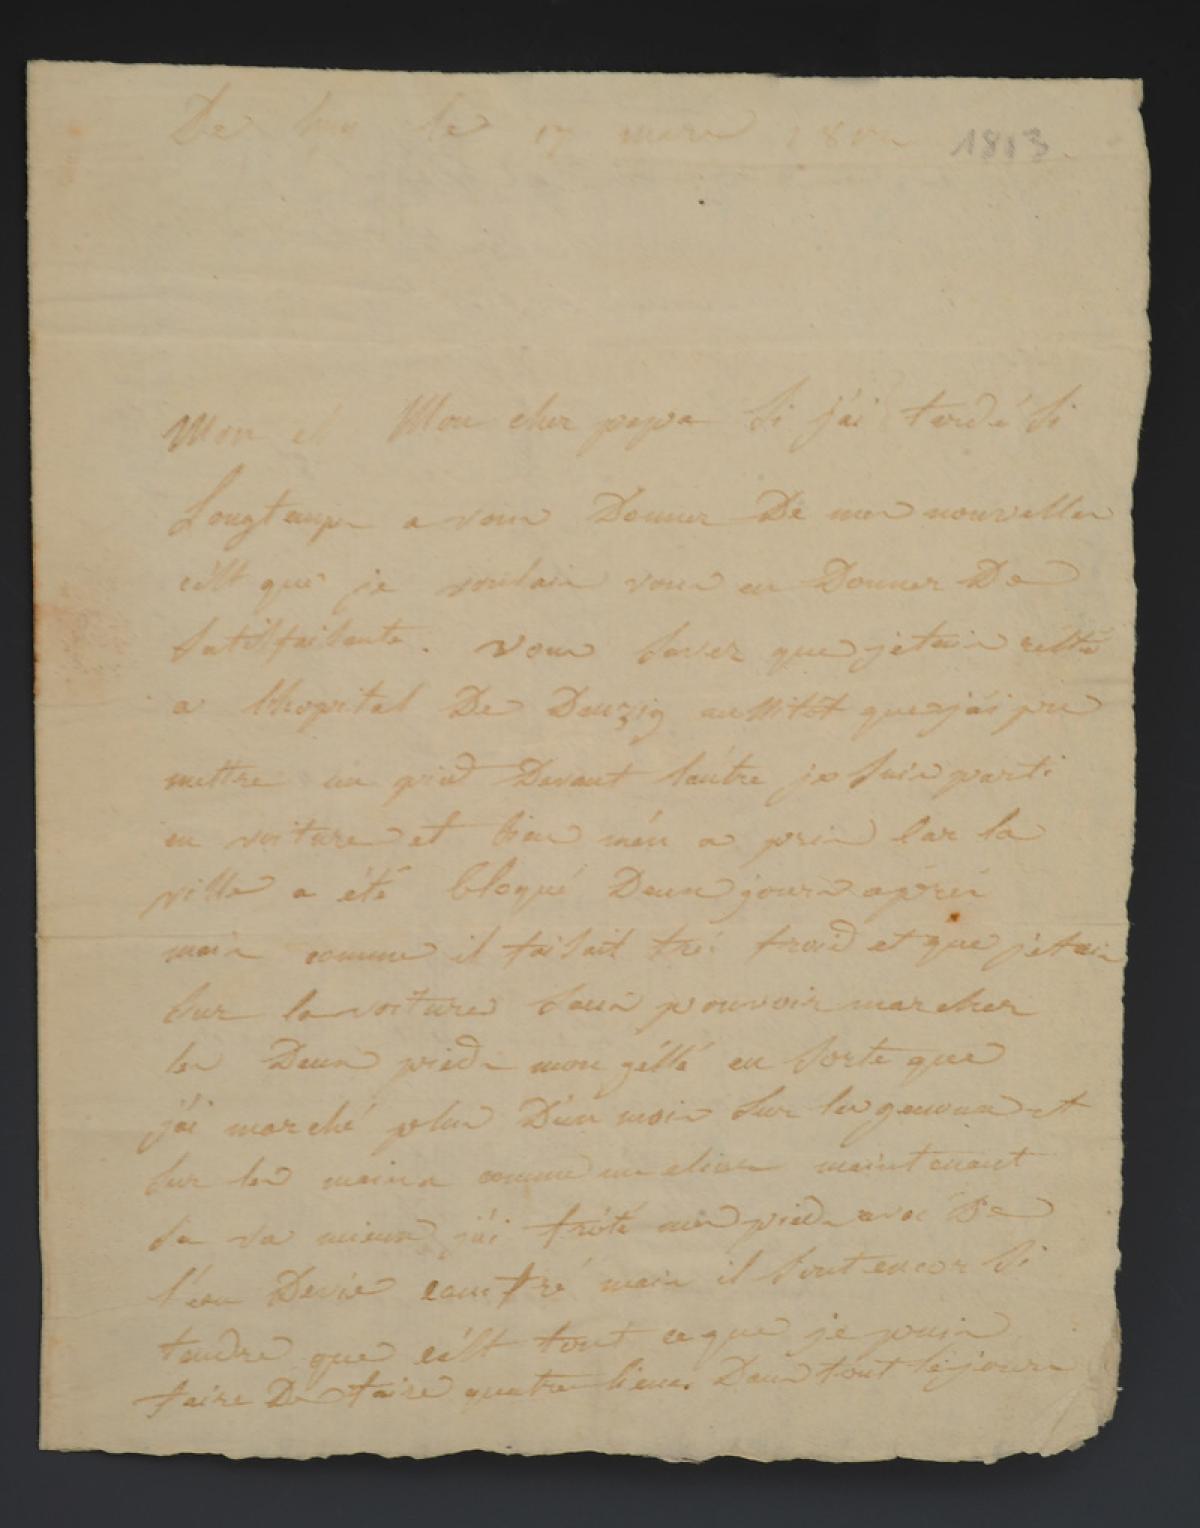 De le 17 mars 1813
Mon ch Mon cher papa si j'ai tardé si
Longtemps a vous Donner De mes nouvelles
cést que je voulais vous en Donner De
satisfaisante. vous savez que jetais resté
a lhopital De Danzig aussitot que j'ai pu
mettre un pied Devant lautre je suis parti
en voiture et bien men a pris car la
ville a été bloqué Deux jours aprés
mais comme il faisait tré froid et que jetais
sur la voiture sans pouvoir marcher
les Deux pieds mon gélé en sorte que
j'ai marché plus D'un mois sur les genoux et
sur les mains comme un chien maintenant
sa va mieux j'ai froté mes pieds avec De
l'eau Devie camfré mais il sont encor si
tendre que cést tout ce que je puis
faire De faire quatre lieues Dans tout le jours